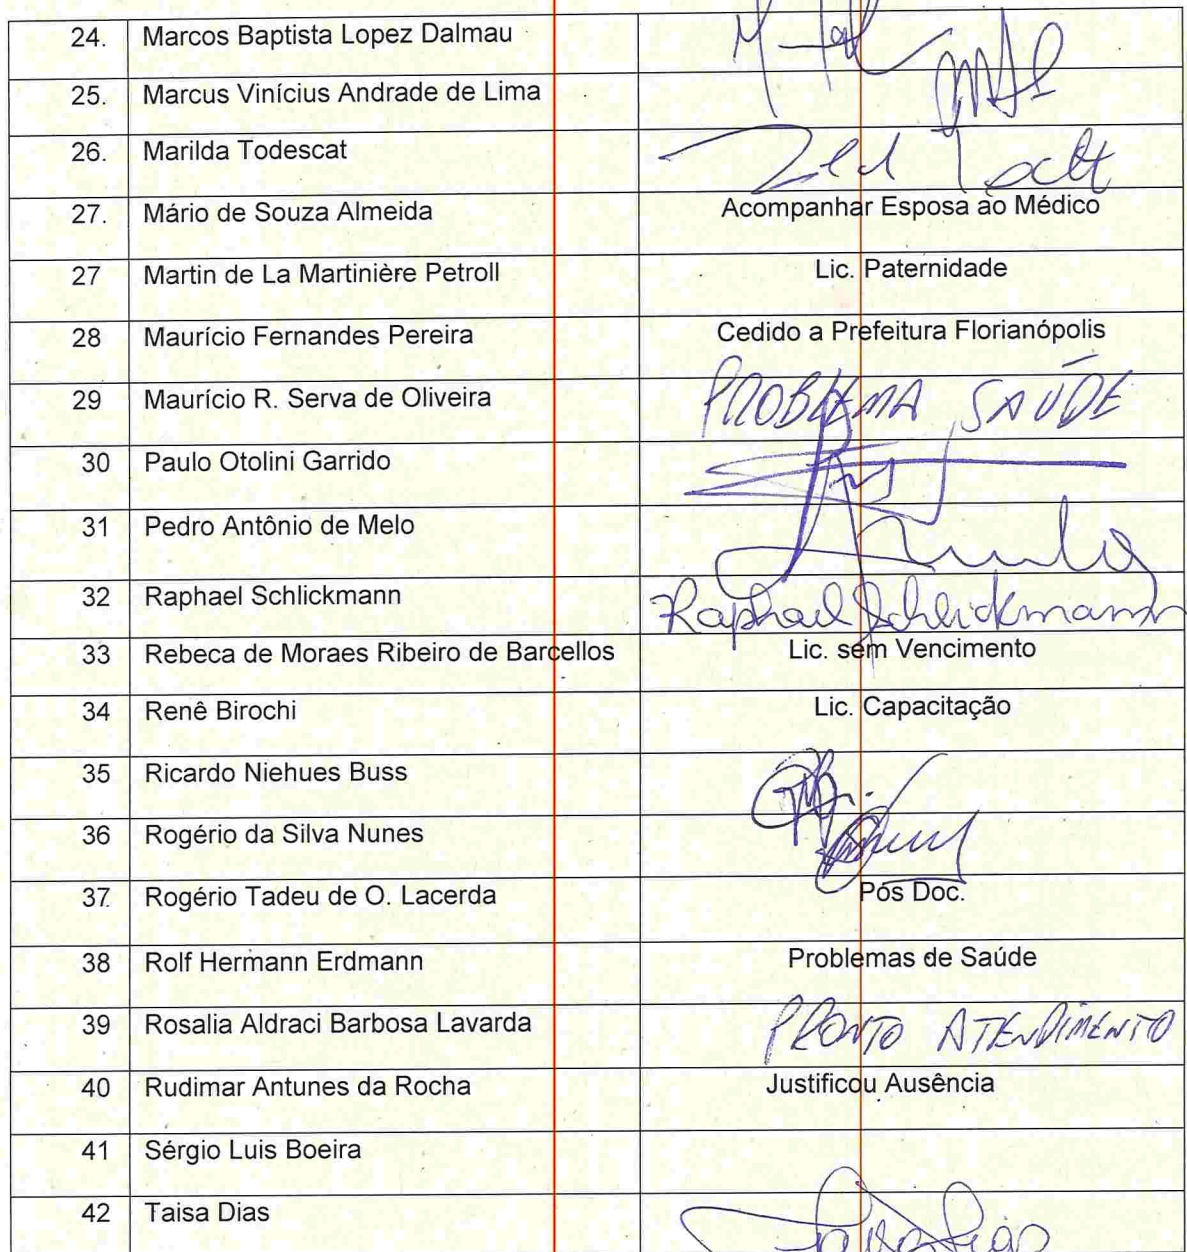 24. Marcos Baptista Lopez Dalmau
25. Marcus Vinícius Andrade de Lima
26. Marilda Todescat
27. Mário de Souza Almeida Acompanhar Esposa ao Médico
27 Martin de La Martinière Petroll Lic. Paternidade
28 Maurício Fernandes Pereira Cedido a Prefeitura Florianópolis
29 Maurício R. Serva de Oliveira PROBLEMA SAÚDE
30 Paulo Otolini Garrido
31 Pedro Antônio de Melo
32 Raphael Schlickmann Raphael Schlickmann
33 Rebeca de Moraes Ribeiro de Barcellos Lic. sem Vencimento
34 Renê Birochi Lic. Capacitação
35 Ricardo Niehues Buss
36 Rogério da Silva Nunes
37 Rogério Tadeu de O. Lacerda Pós Doc.
38 Rolf Hermann Erdmann Problemas de Saúde
39 Rosalia Aldraci Barbosa Lavarda PRONTO ATENDIMENTO
40 Rudimar Antunes da Rocha Justificou Ausência
41 Sérgio Luis Boeira
42 Taisa Dias